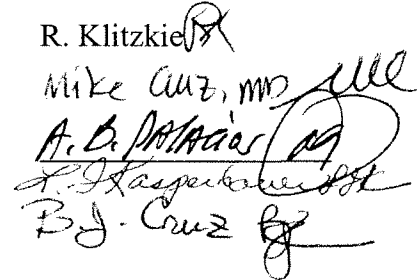 R. Klitzkie
Mike Cruz, MD
A. B. Palacios
L. F. Kasperbauer
B. J. Cruz